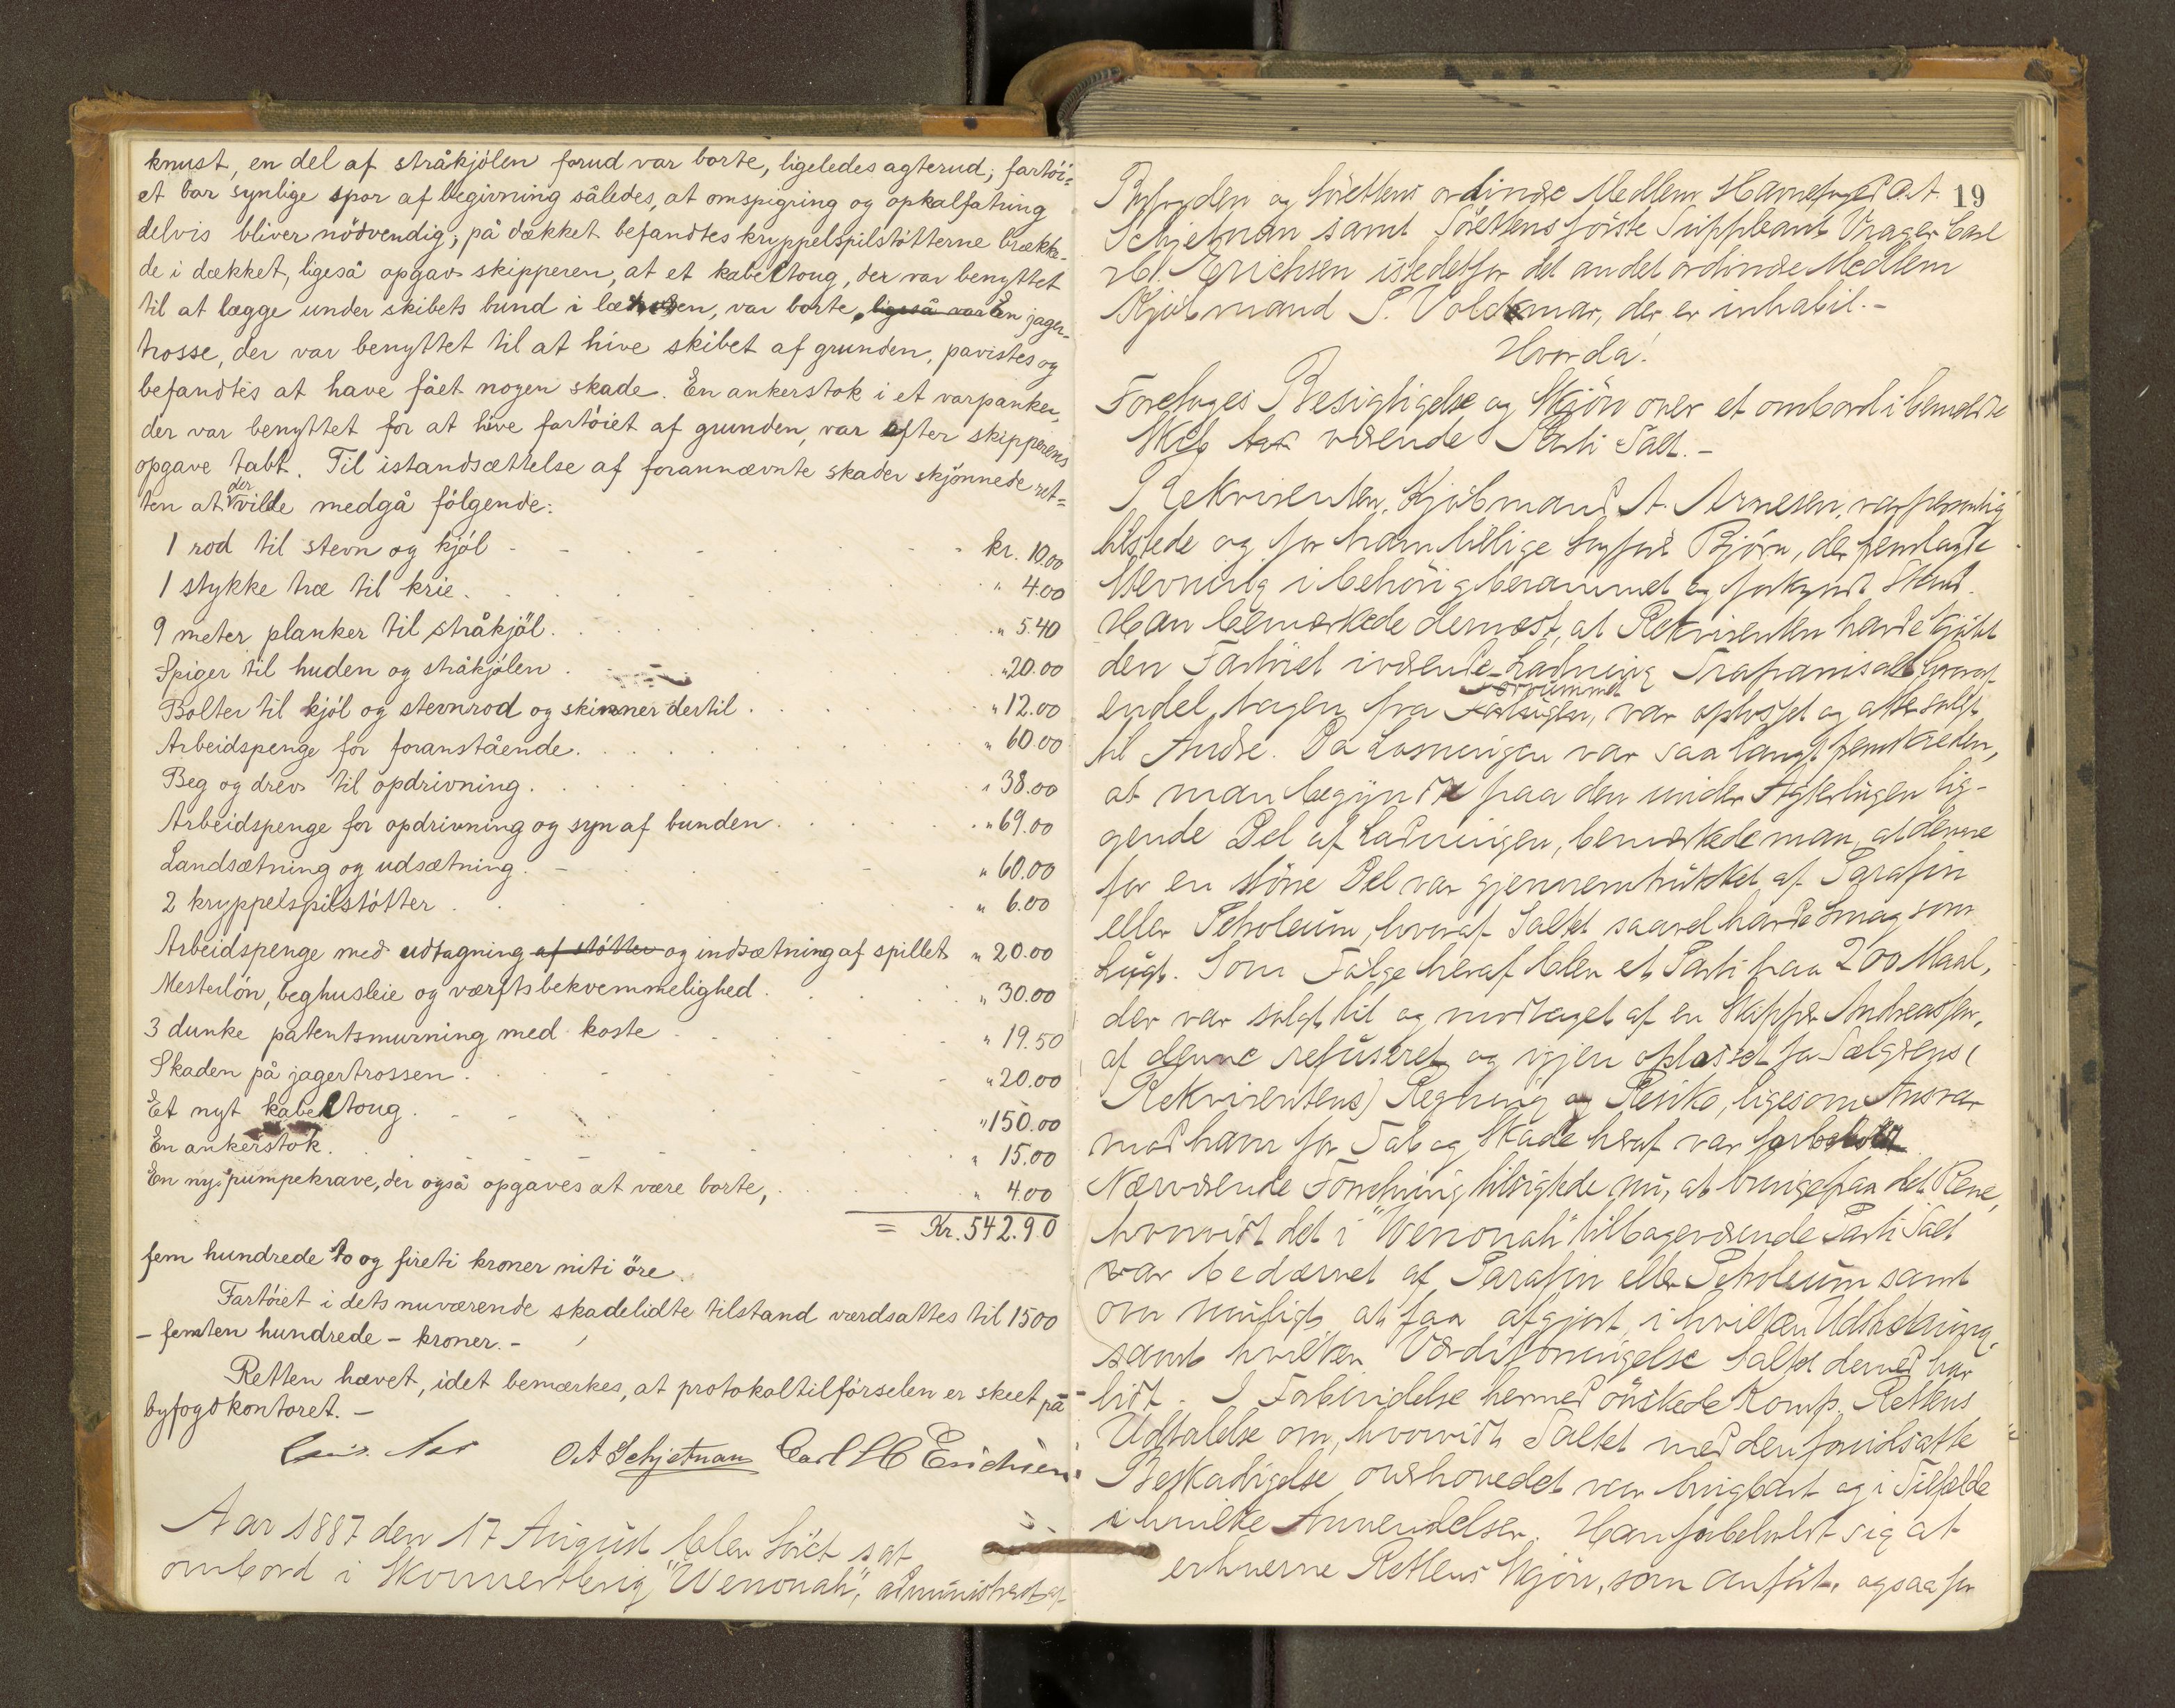 knust, en del af stråkjölen forud var borte, ligeledes agterud; fartöi=
et bar synlige spor af begivning således, at omspigring og opkalfatring
delvis bliver nödvendig; på dækket befandtes kryppelspilstötterne brække-
de i dækket, ligeså opgav skipperen, at et kabeltoug, der var benyttet
til at lægge under skibets bund i læ siden, var borte, ligeså var En jager-
trosse, der var benyttet til at hive skibet af grunden, pavistes og
befandtes at have fået nogen skade. En ankerstok i et varpanker,
der var benyttet for at hive fartöiet af grunden, var efter skipperens
opgave tabt. Til istandsættelse af forannævnte skader skjönnede ret=
ten at der vilde medgå fölgende:
1 rod til stevn og kjöl - kr. 10.00
1 stykke træ til krie. " 4.00
9 meter planker til stråkjöl. " 5.40
Spiger til huden og stråkjölen . " 20.00
Bolter til kjöl og stevnrod og skinner dertil . " 12.00
Arbeidspenge for foranstående. " 60.00
Beg og drev til opdrivning. " 38.00
Arbeidspenge for opdrivning og syn af bunden . " 69.00
Landsætning og udsætning. " 60.00
2 kryppelspilstötter . " 6.00
Arbeidspenge med udtagning af stötter og indsætning af spillet " 20.00
Mesterlön, beghusleie og værftsbekvemmelighed . " 30.00
3 dunke patentsmurning med koste " 19.50
Skaden på jagertrossen. " 20.00
Et nyt kabeltoug. " 150.00
En ankerstok. " 15.00
En ny pumpekrave, der også opgaves at være borte, " 4.00
= Kr. 542.90
fem hundrede to og fireti kroner niti öre.
Fartöiet i dets nuværende skadelidte tilstand værdsattes til 1500
- femten hundrede - kroner. -
Retten hævet, idet bemærkes, at protokoltilförselen er skeet på
byfogdkontoret. -
O A Schjetnan Carl H Erichsen
Aar 1887 den 17 August blev Söret sat
ombord i Skonnertbrig "Wenonah", administreret af
19
Byfogden og Sörettens ordinære Medlem Havnefoged O. A.
Schjetnan samt Sörettens förste Suppleant Vrager Carl
H. Erichsen istedetfor det andet ordinære Medlem
Kjöbmand P. Voldemar, der er inhabil. -
Hvorda!
Foretoges Besigtigelse og Skjön over et ombord i bemeldte
Skib værende Parti Salt. -
Rekvirenten, Kjöbmand A. Arnesen, var personlig
tilstede og for ham tillige Sagförer Björn, der fremlagde
Stevning i behörig berammet og forkyndt Stand.
Han bemærkede dernæst, at Rekvirenten havde kjöbt
den i Fartöiet værende Ladning Trapanisalt hvoraf
endel, tagen fra Forlugen, Forrummet var oplosset og atter solgt
til Andre. Da Losningen var saa langt fremskreden,
at man begyndte paa den under Agterlugen lig-
gende Del af Ladningen, bemærkede man, at denne
for en större Del var gjennemtrukket af Parafin
eller Petroleum, hvoraf Saltet saavel havde Smag som
Lugt. Som Fölge heraf blev et Parti paa 200 Maal,
der var solgt til og modtaget af en Skipper Andreassen,
af denne refuseret og igjen oplosset for Sælgerens (
Rekvirentens) Regning og Resiko, ligesom Ansvar
mod ham for Tab og Skade heraf var forbeholdt.
Nærværende Forretning tilsigtede nu, at bringe paa det Rene,
hvorvidt det i "Wenonah" tilbageværende Parti Salt
var bedærvet af Parafin eller Petroleum samt
om muligt at faa afgjort, i hvilken Udstrækning
samt hvilken Værdiforringelse Saltet derved har
lidt. I Forbindelse hermed önskede Komp. Rettens
Udtalelse om, hvorvidt Saltet med den forudsatte
Beskadigelse overhovedet var brugbart og i Tilfælde
i hvilke Anvendelser. Han forbeholdt sig at
erhverve Rettens Skjön, som anfört, ogsaa for